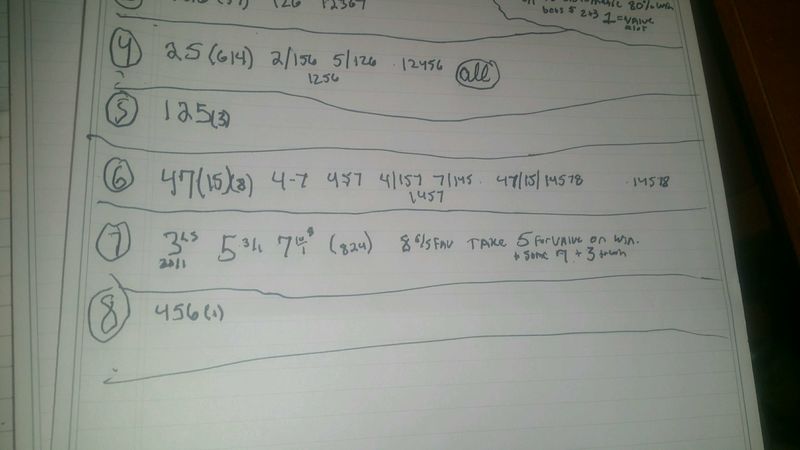 126 12367
80% win
bets 5 2+3 1=value
④ 25(614) 2/156 5/126 .12456 all
1256
⑤ 125(3)
⑥ 47(15)(8) 4-7 457 4/157 7/145. 47/15/14578 .14578
1457
⑦ 3 5 3/1 7 (824) 8 6/5 FAV TAKE 5 for value on win.
20/1 + some 7 + 3 to win
⑧ 456(1)